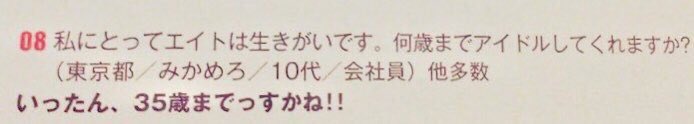 08 私にとってエイトは生きがいです。何歳までアイドルしてくれますか?
(東京都／みかめろ／10代／会社員)他多数
いったん、35歳までっすかね!!